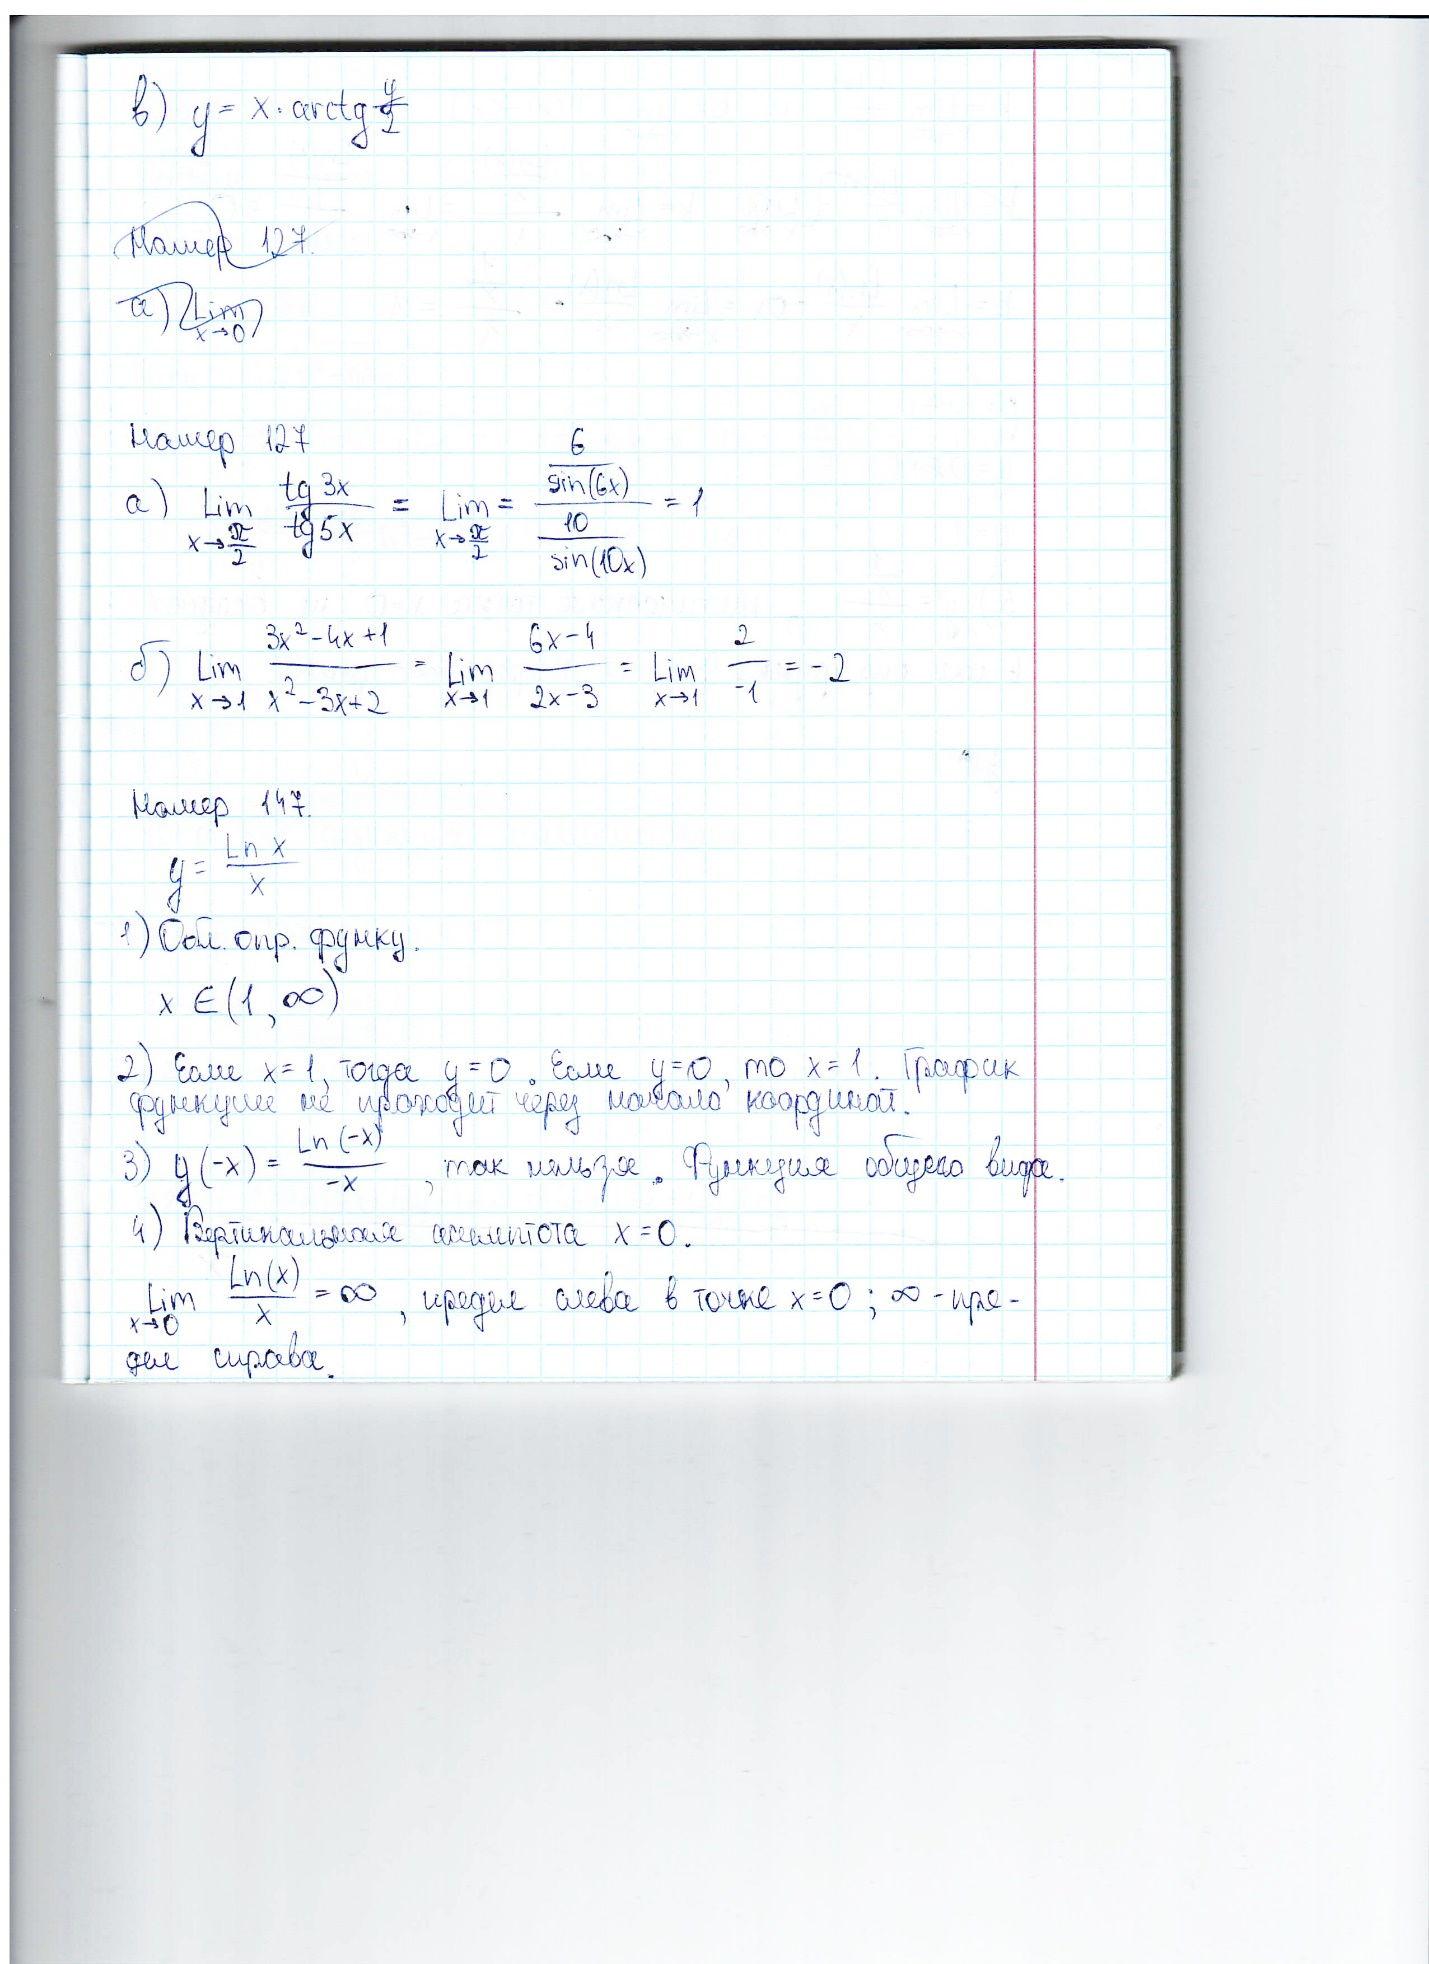 в) y = x · arctg y/2
Номер 127.
а) Lim x→0
Номер 127
а) Lim x→π/2 tg 3x / tg 5x = Lim x→π/2 = (6 / sin(6x)) / (10 / sin(10x)) = 1
б) Lim x→1 (3x² - 4x + 1) / (x² - 3x + 2) = Lim x→1 (6x - 4) / (2x - 3) = Lim x→1 2 / -1 = -2
Номер 147.
y = Ln x / x
1) Обл. опр. функц.
x ∈ (1, ∞)
2) Если x = 1, тогда y = 0. Если y = 0, то x = 1. График
функции не проходит через начало координат.
3) y(-x) = Ln(-x) / -x, так нельзя. Функция общего вида.
4) Вертикальная асимптота x = 0.
Lim x→0 Ln(x) / x = ∞, предел слева в точке x = 0; ∞ - пре-
дел справа.